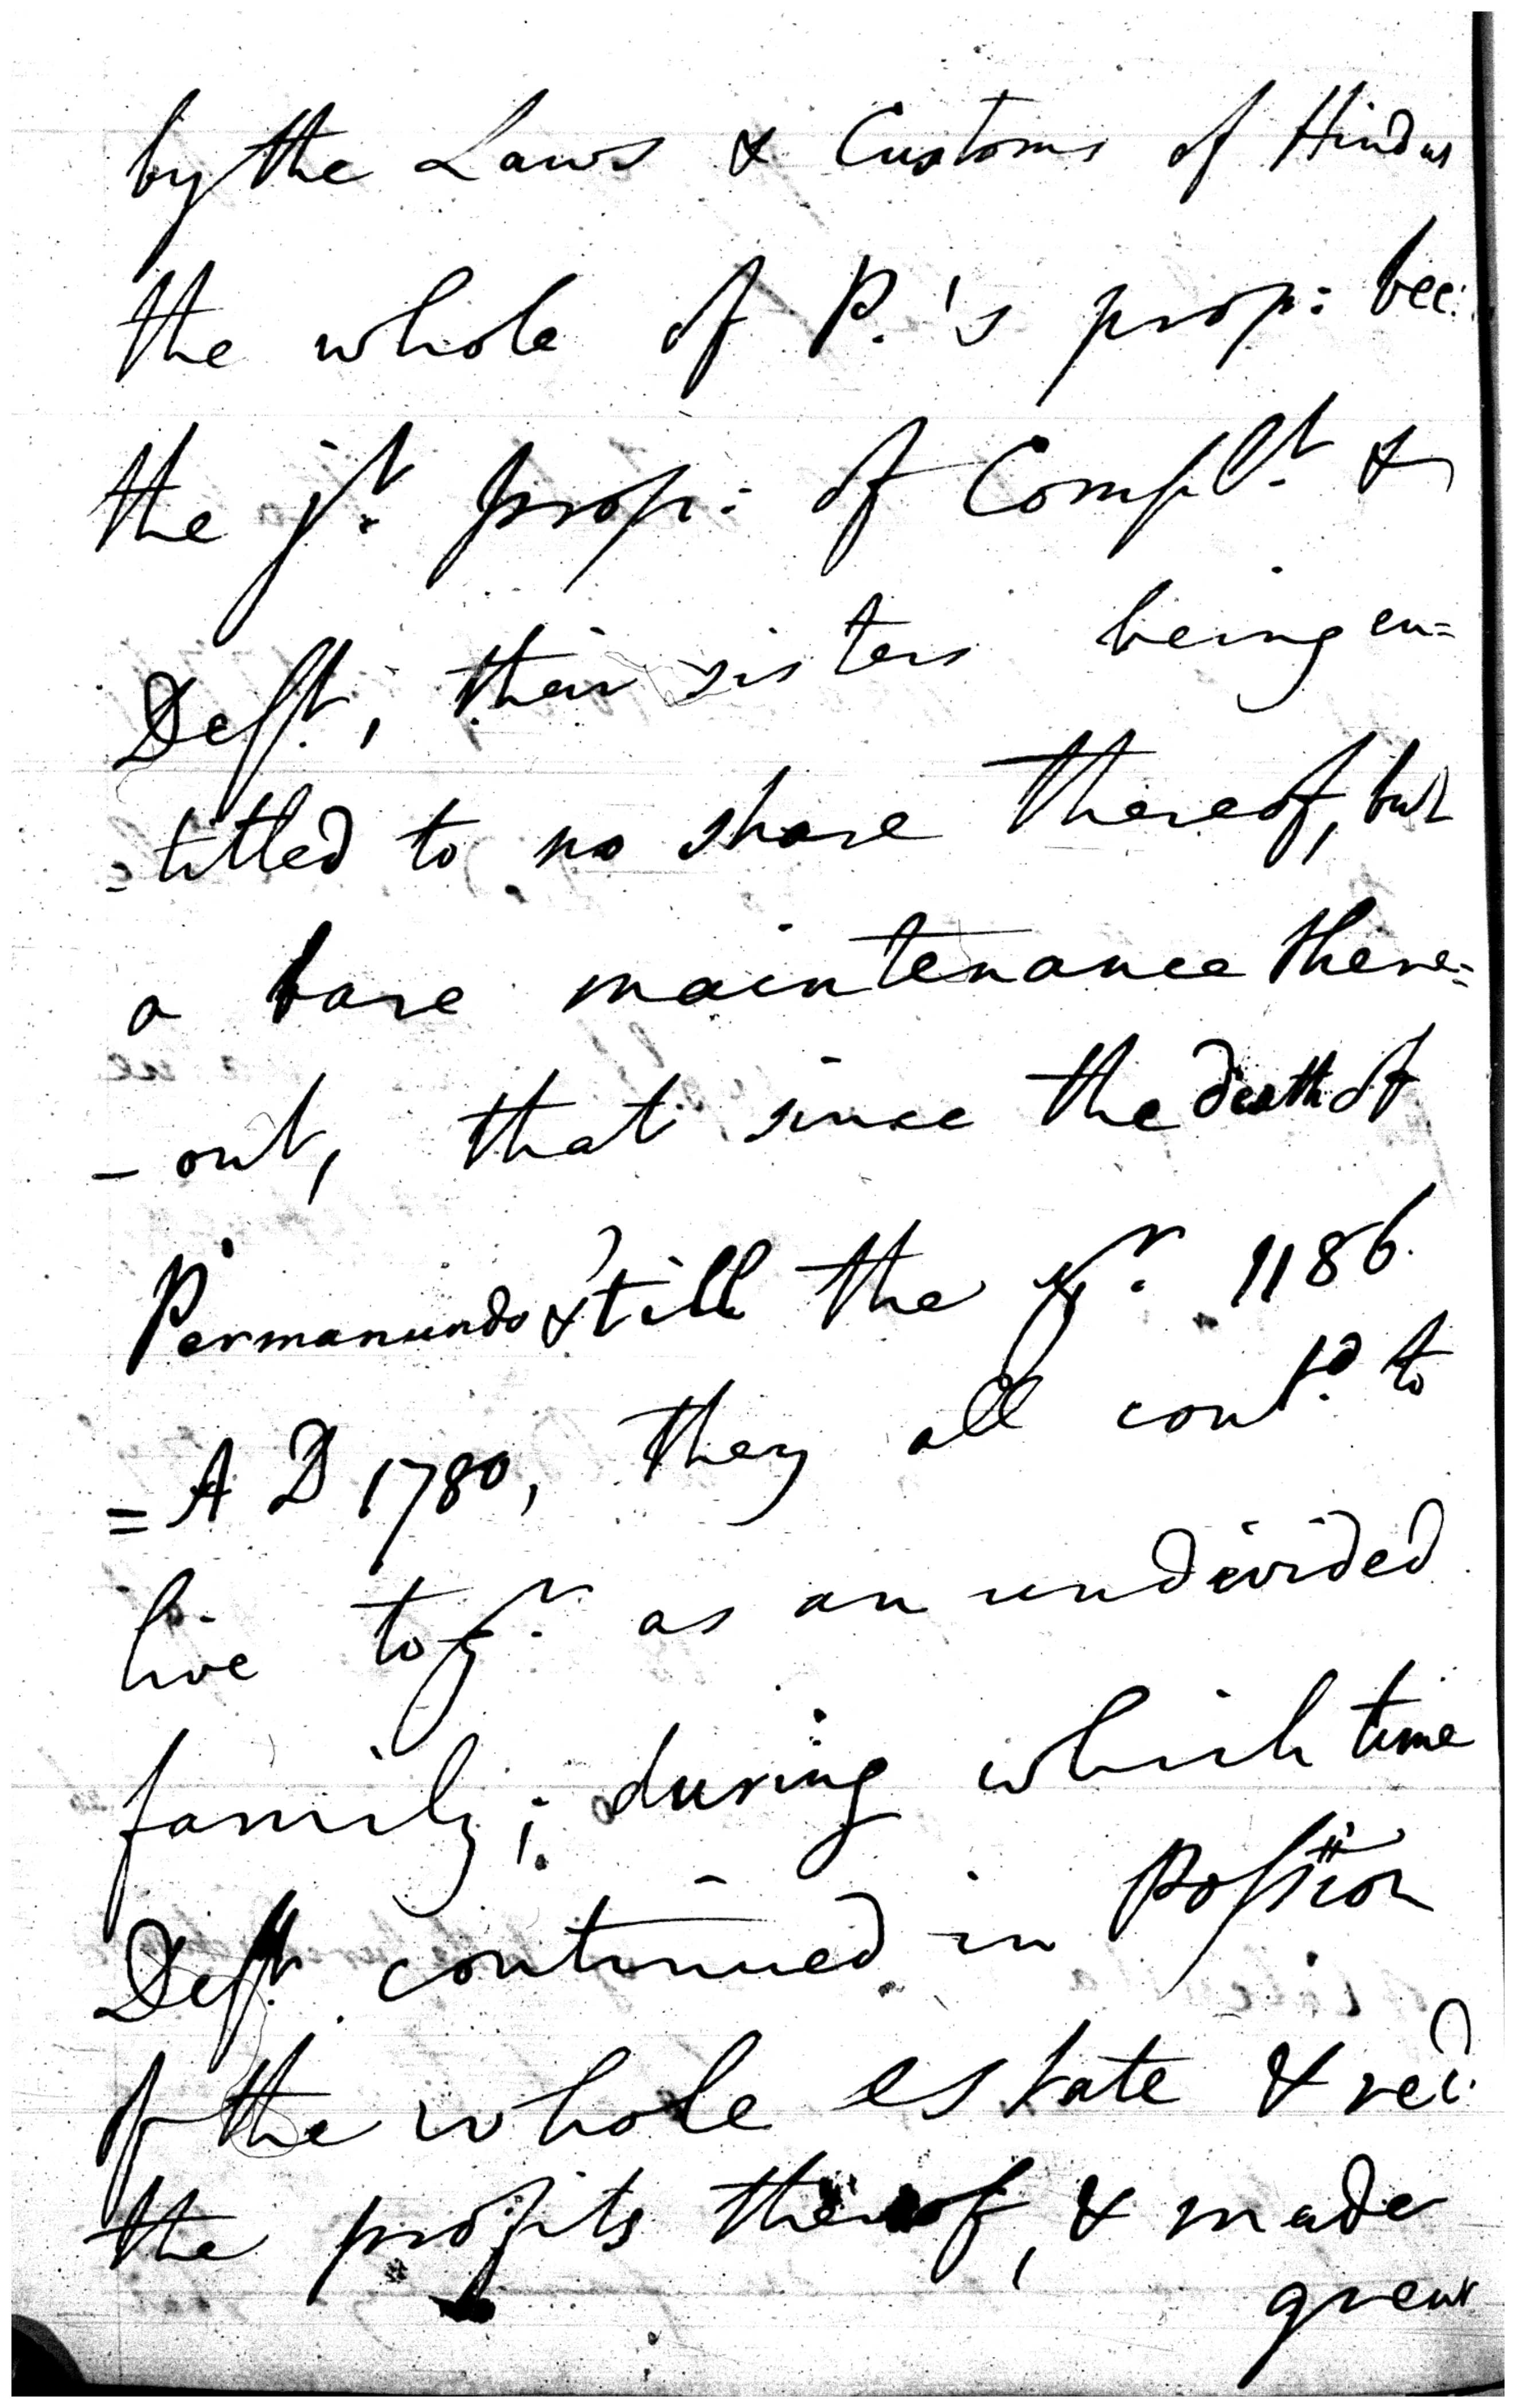 by the Laws & Customs of Hindus
the whole of P.'s prop: bec:
the jt. prop: of Complt. &
Deft., their sisters being en=
=titled to no share thereof, but
a bare maintenance there=
-out, that since the death of
Permanundo & till the yr. 1186
= A D 1780, they all contd. to
live togr. as an undivided
family; during which time
Deft. continued in Possion
of the whole estate & recd.
the profits thereof, & made
great